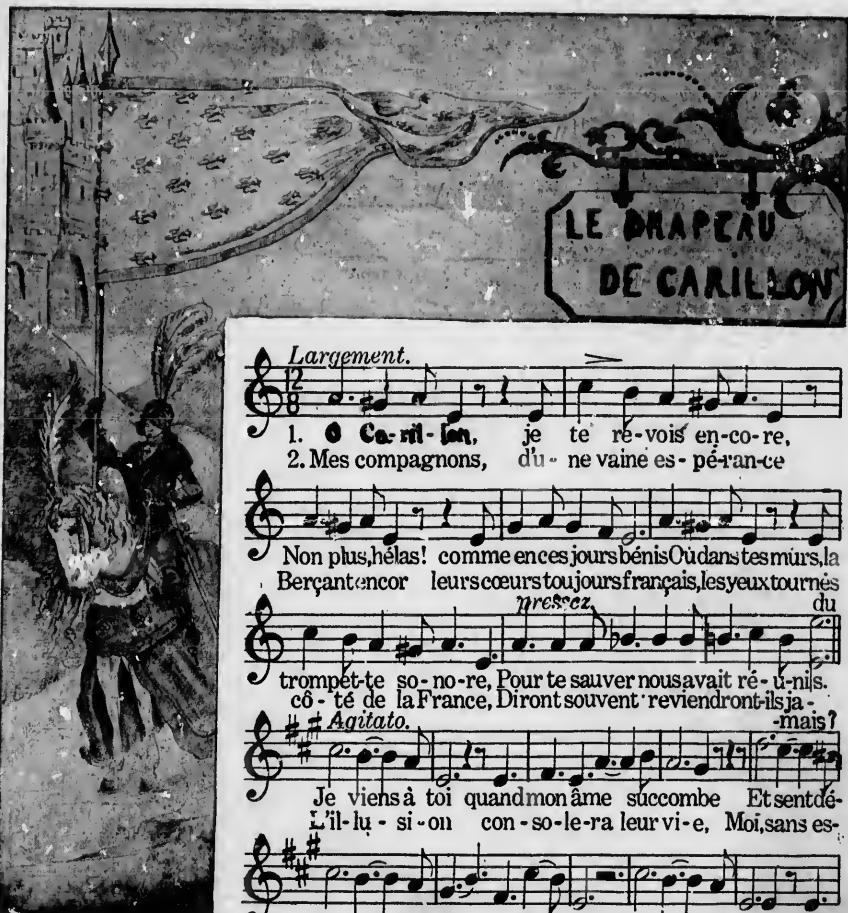 LE DRAPEAU
DE CARILLON
Largement.
12
8
1. O Ca-ril-lon, je te re-vois en-co-re,
2. Mes compagnons, d'u-ne vaine es-pé-ran-ce
Non plus, hélas! comme en ces jours bénis Où dans tes murs, la
Berçant encor leurs cœurs toujours français, les yeux tournés
pressez du
trompet-te so-no-re, Pour te sauver nous avait ré-u-nis.
cô-té de la France, Diront souvent reviendront-ils ja-
Agitato. -mais?
Je viens à toi quand mon âme succombe Et sent dé-
L'il-lu-si-on con-so-le-ra leur vi-e, Moi, sans es-